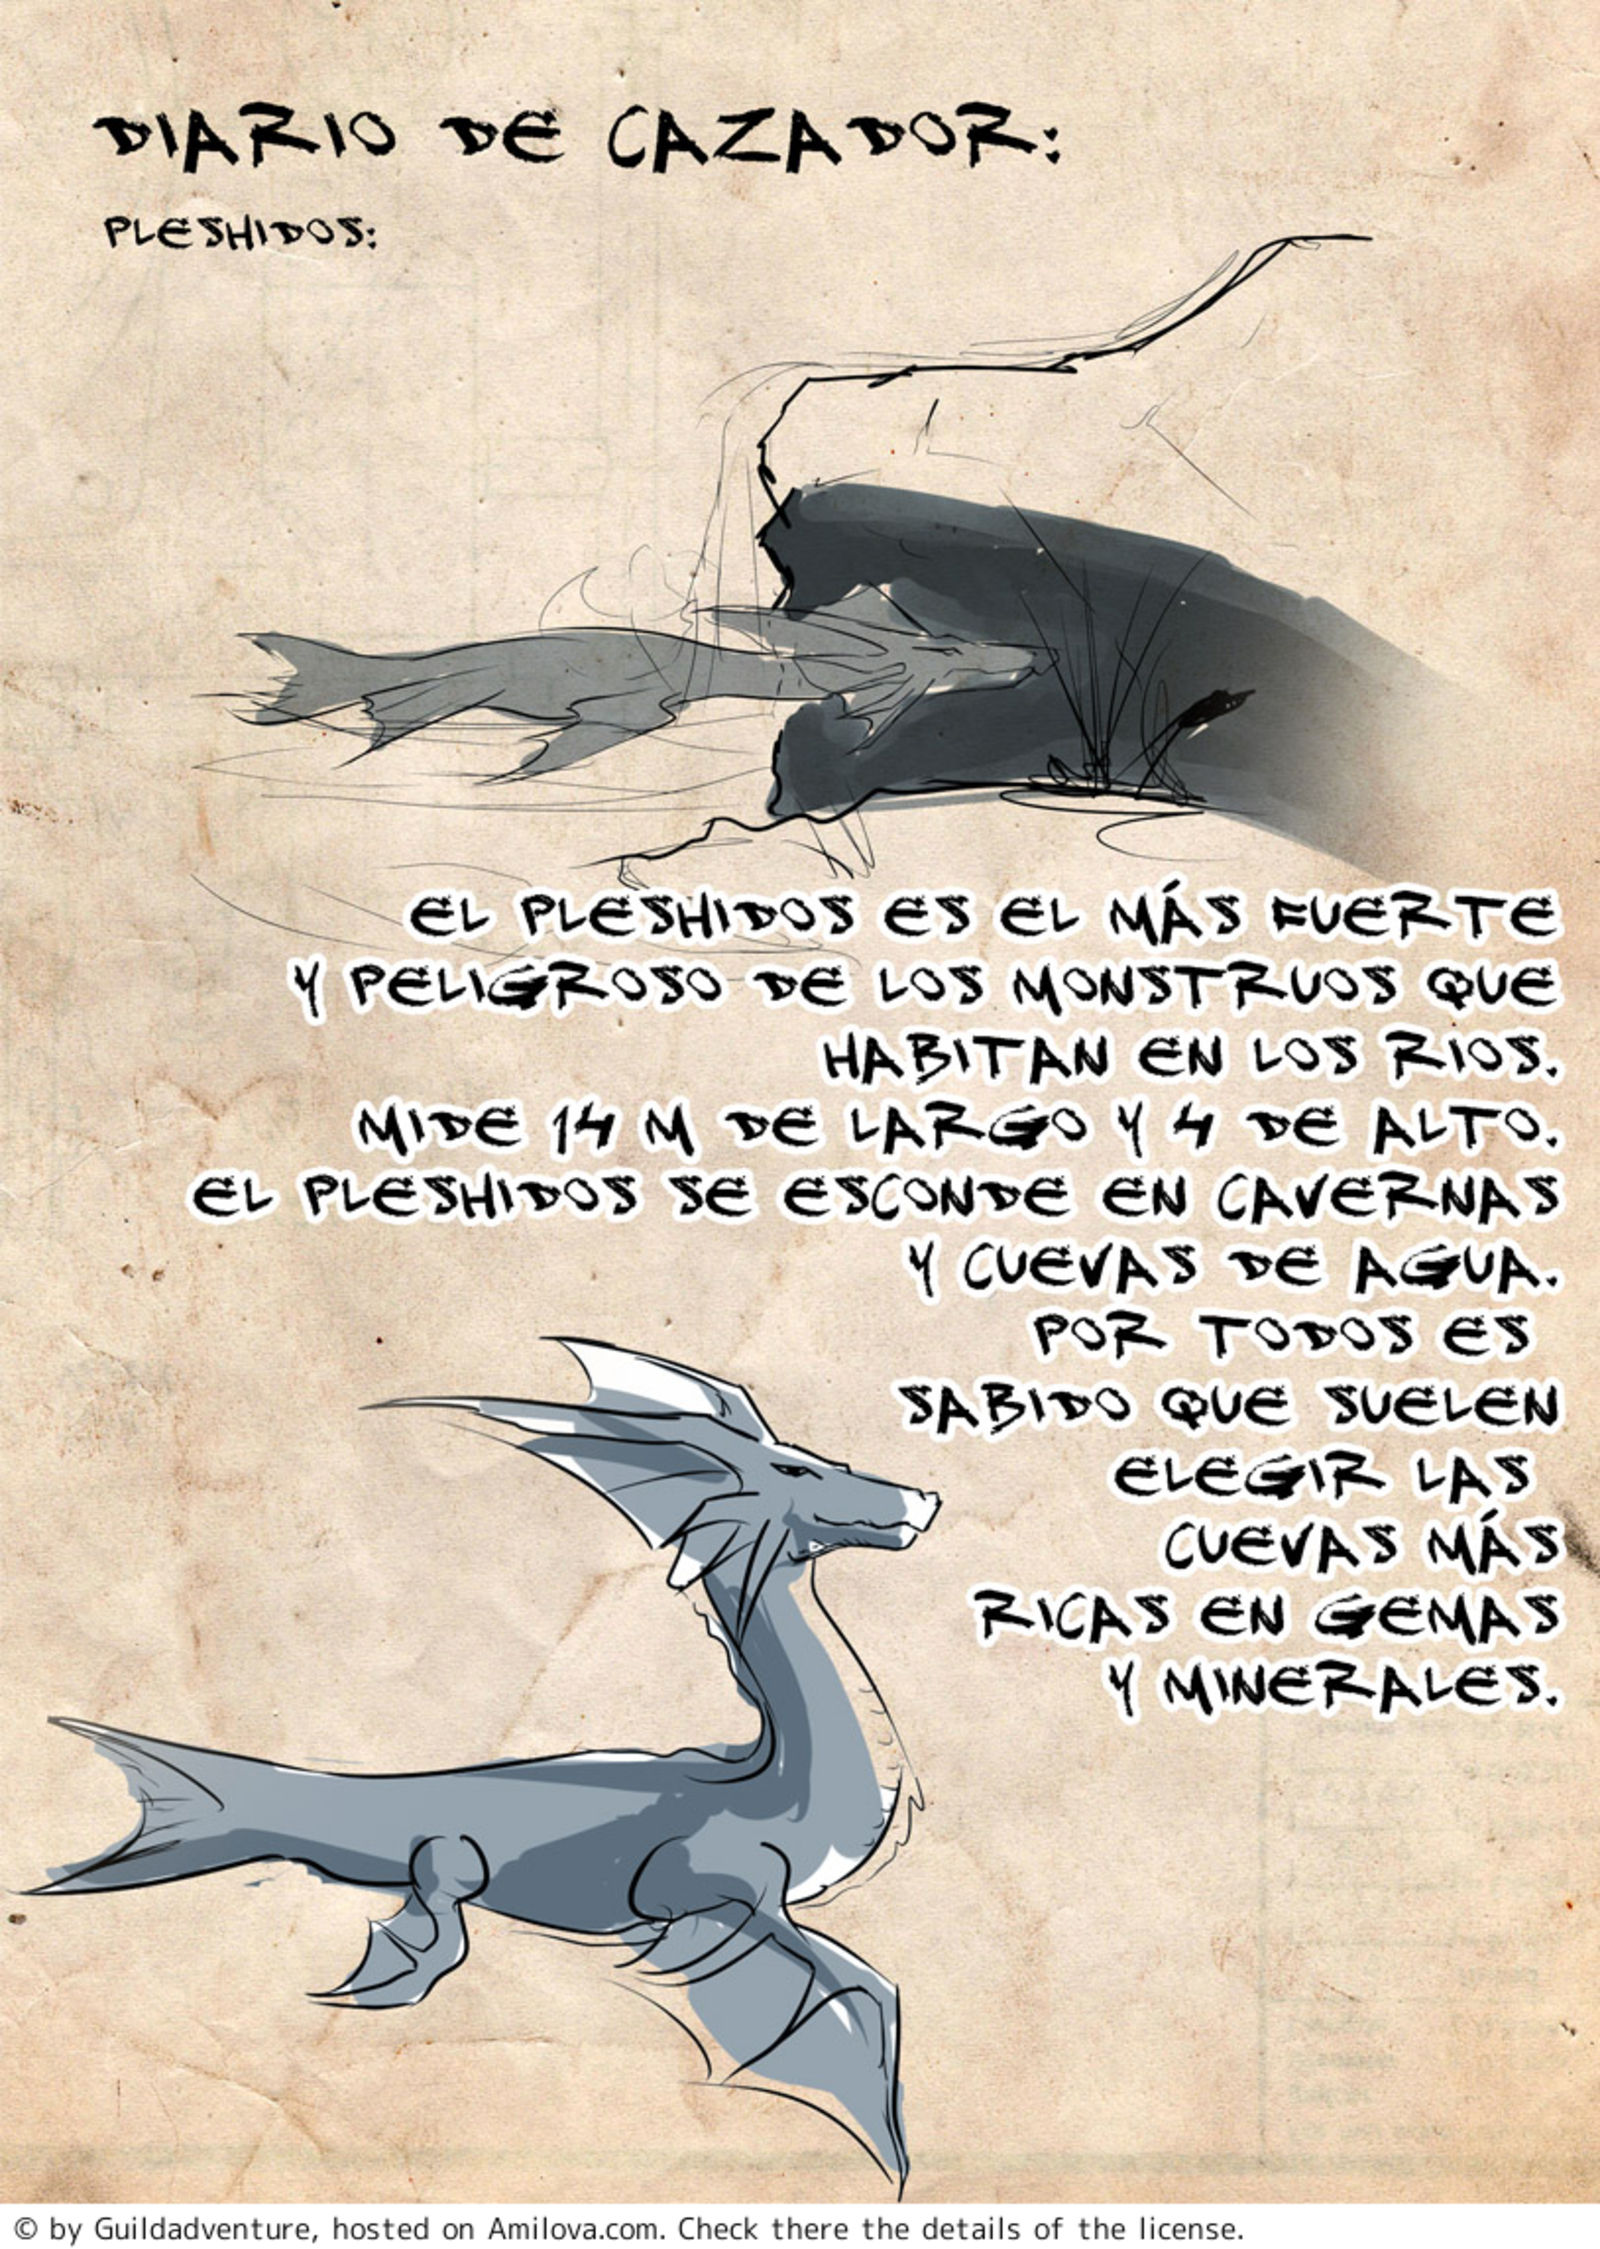 DIARIO DE CAZADOR:
PLESHIDOS:
EL PLESHIDOS ES EL MÁS FUERTE
Y PELIGROSO DE LOS MONSTRUOS QUE
HABITAN EN LOS RIOS.
MIDE 14 M DE LARGO Y 4 DE ALTO.
EL PLESHIDOS SE ESCONDE EN CAVERNAS
Y CUEVAS DE AGUA.
POR TODOS ES
SABIDO QUE SUELEN
ELEGIR LAS
CUEVAS MÁS
RICAS EN GEMAS
Y MINERALES.
© by Guildadventure, hosted on Amilova.com. Check there the details of the license.